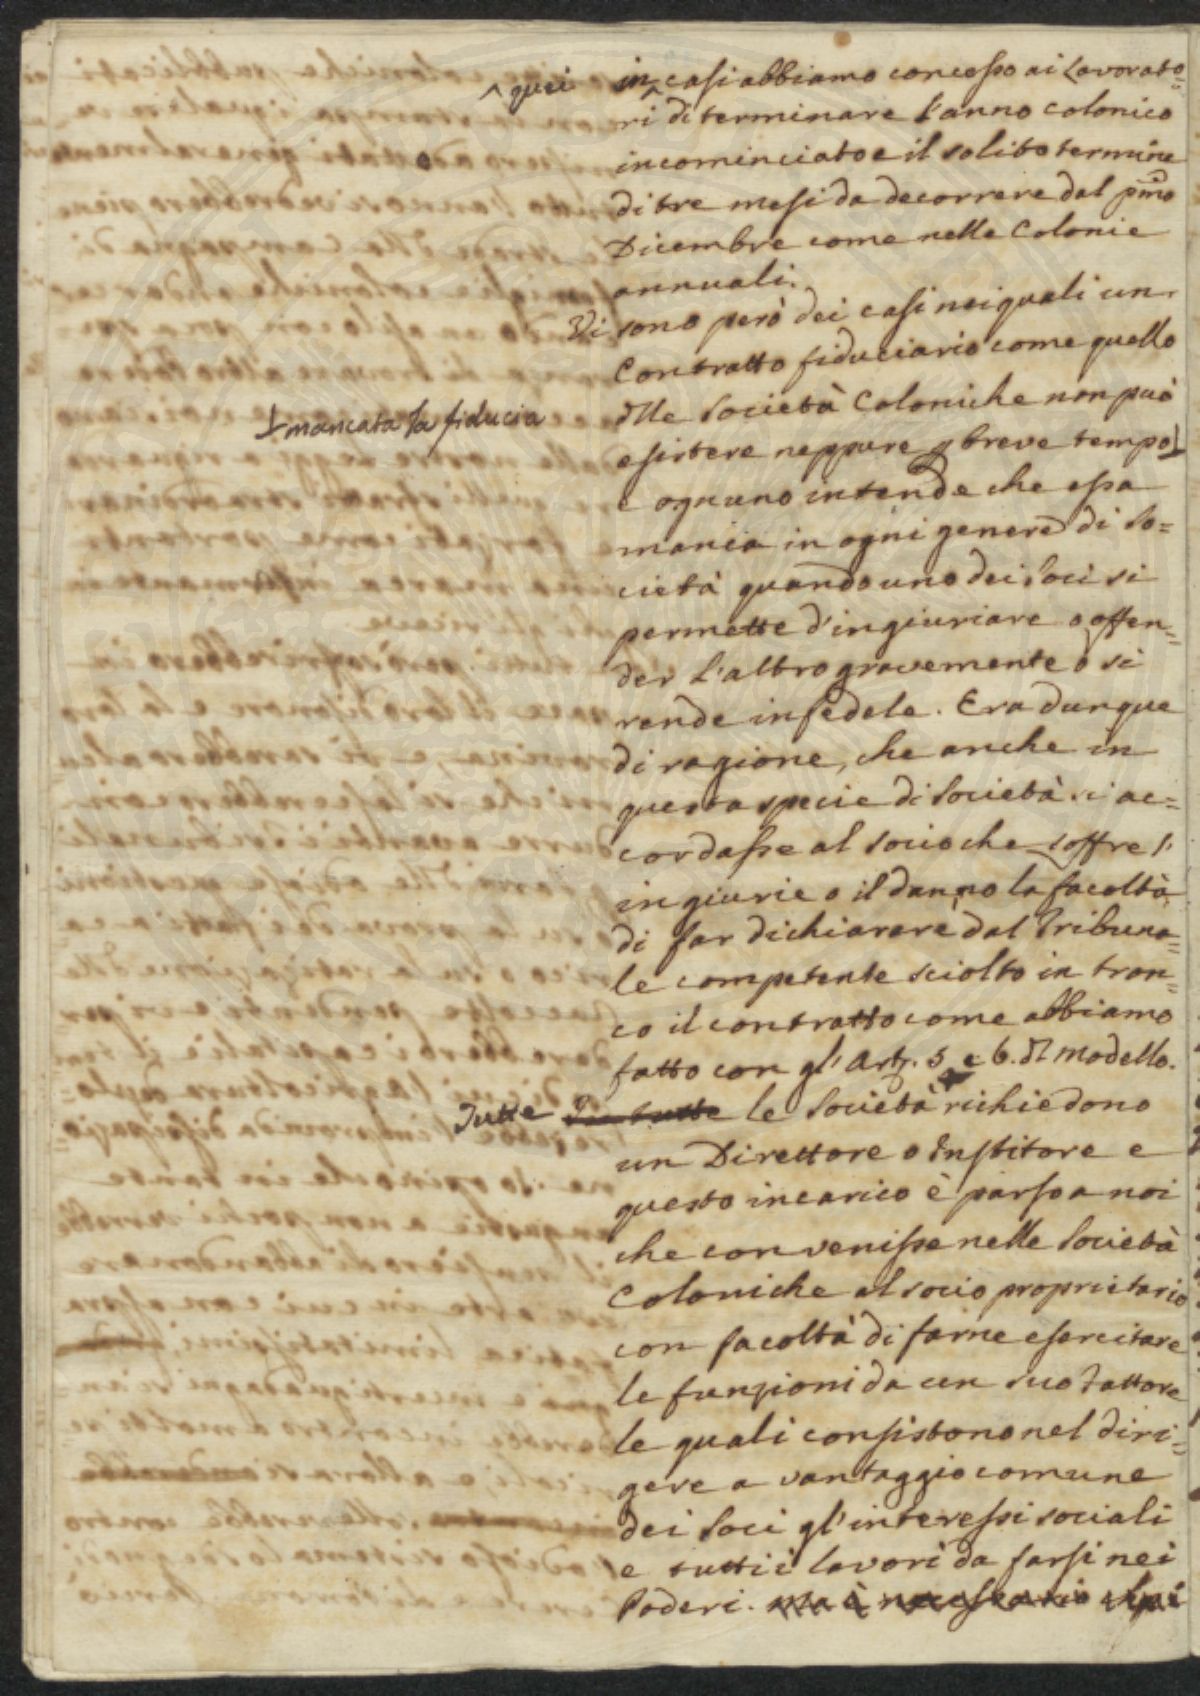 ^ quei
in ^ casi abbiamo concesso ai Lavorato=
ri di terminare l'anno colonico
incominciato e il solito termine
di tre mesi da decorrere dal pmo
Dicembre come nelle Colonie
annuali.
Vi sono però dei casi nei quali un
Contratto fiduciario come quello
dlle Società Coloniche non può
esistere neppure p breve tempo
mancata la fiducia
e ognuno intende che essa
manca in ogni genere di So=
cietà quando uno dei Soci si
permette d'ingiuriare o offen=
der l'altro gravemente o si
rende infedele. Era dunque
di ragione, che anche in
questa specie di Società si ac=
cordasse al socio che soffre l'
ingiurie o il danno la facoltà
di far dichiarare dal Tribuna=
le competente sciolto in tron=
co il contratto come abbiamo
fatto con gl'Artj. 5 e 6. dl modello.
Tutte le Società richiedono
un Direttore o Institore e
questo incarico è parso a noi
che convenisse nelle Società
Coloniche al socio proprietario
con facoltà di farne esercitare
le funzioni da un suo Fattore
le quali consistono nel diri=
gere a vantaggio comune
dei Soci gl'interessi sociali
e tutti i lavori da farsi nei
Poderi. ma è necessario che i